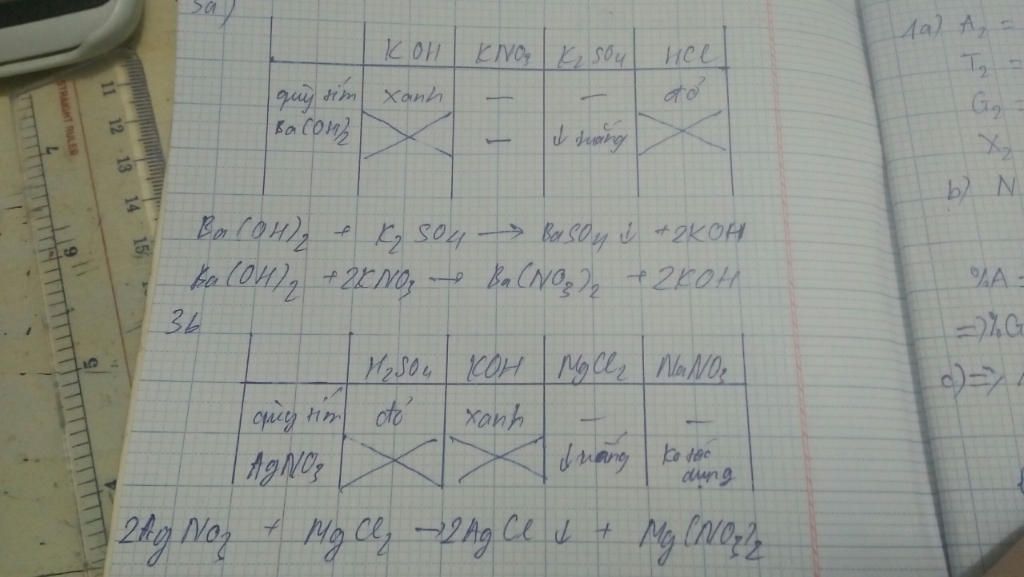 3a)
KOH KNO3 K2SO4 HCl
quỳ tím xanh — — đỏ
Ba(OH)2 — ↓ trắng
Ba(OH)2 + K2SO4 → BaSO4 ↓ + 2KOH
Ba(OH)2 + 2KNO3 → Ba(NO3)2 + 2KOH
3b
H2SO4 KOH MgCl2 NaNO3
quỳ tím đỏ xanh — —
AgNO3 ↓ trắng Ko tác
dụng
2AgNO3 + MgCl2 → 2AgCl ↓ + Mg(NO3)2
1a) A2 =
T2 =
G2 =
X2
b) N
%A =
=> %G
c) =>
STRAIGHT RULER
11
12
13
14
15
4
5
6